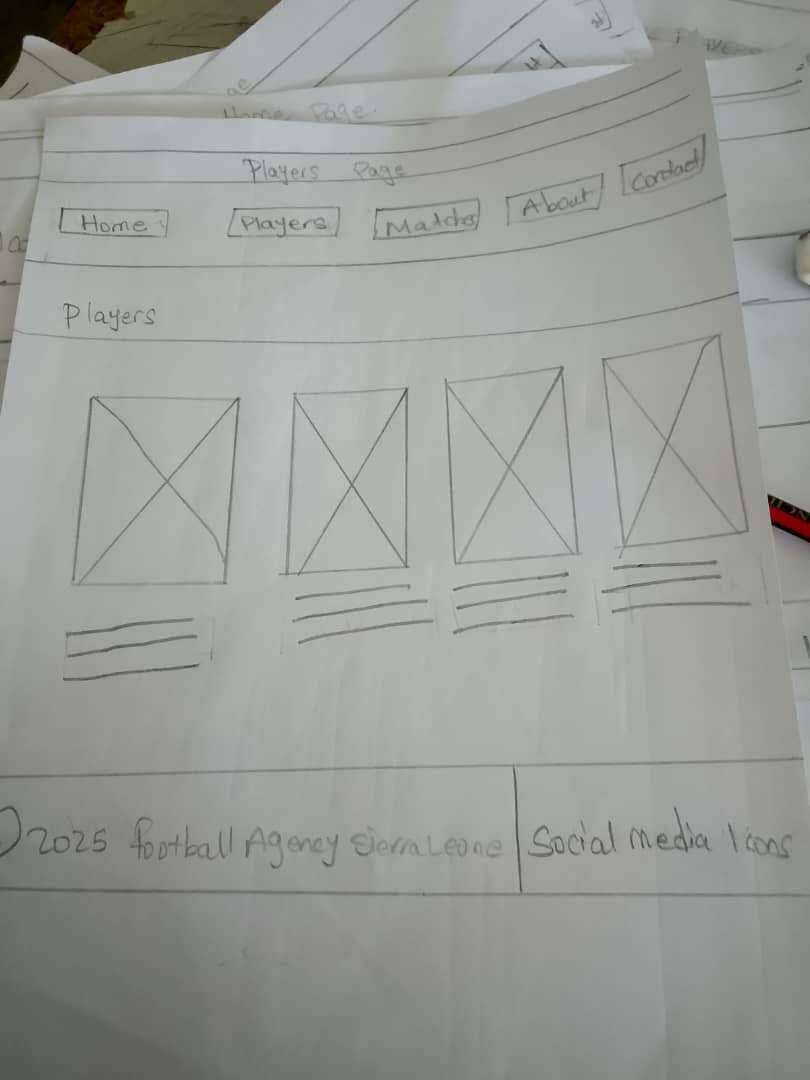 Home Page.
Players Page
Home Players Matches About Contact
Players
2025 football Agency SierraLeone Social media Icons